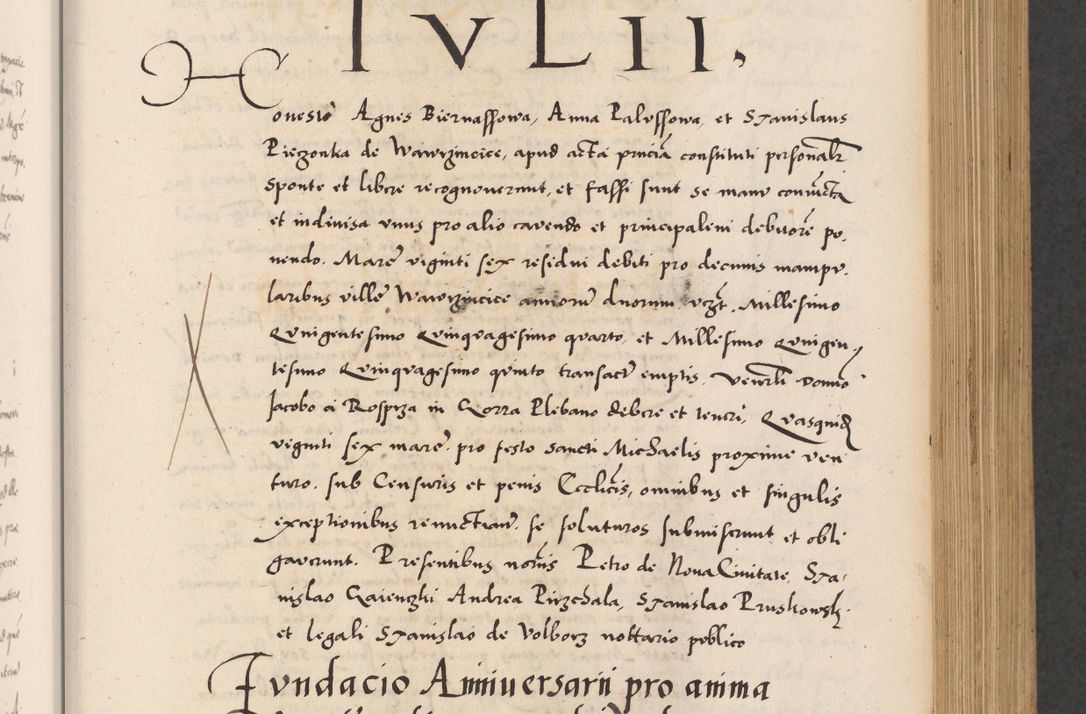 IVLII.
Honesto Agnes Biernassowa, Anna Palussowa, et Stanislaus
Pieczonka de Wawrzincice, apud acta pñciã constituti personalr
sponte et libere recognouerunt, et fassi sunt se manu coniuncta
et indiuisa vnus pro alio cavendo et principalem debitorẽ po-
nendo. Marẽ viginti sex residui debiti pro decimis manipu-
laribus villẽ Wawrzincice annorũ duorum vczt. Millesimo
Qvingentesimo Qvinqvagesimo qvarto, et Millesimo Qvingen-
tesimo Qvinqvagesimo qvinto transact emptis. Venerli Domno
Jacobo a Rosprza in Gorra Plebano debere et teneri, Qvasquid
viginti sex marẽ. pro festo Sancti Michaelis proxime ven
turo. sub Censuris et penis Ecclicis, omnibus et singulis
exceptionibus renuctiam. se soluturos submiserunt et obli
gaverunt. Presentibus notris Petro de Noua Ciuitate, Sta-
nislao Gaienczki Andrea Pirzchala, Stanislao Pruskowsk
et legali Stanislao de Volborz nottario pvblico
Fvndacio Anniuersarii pro anima